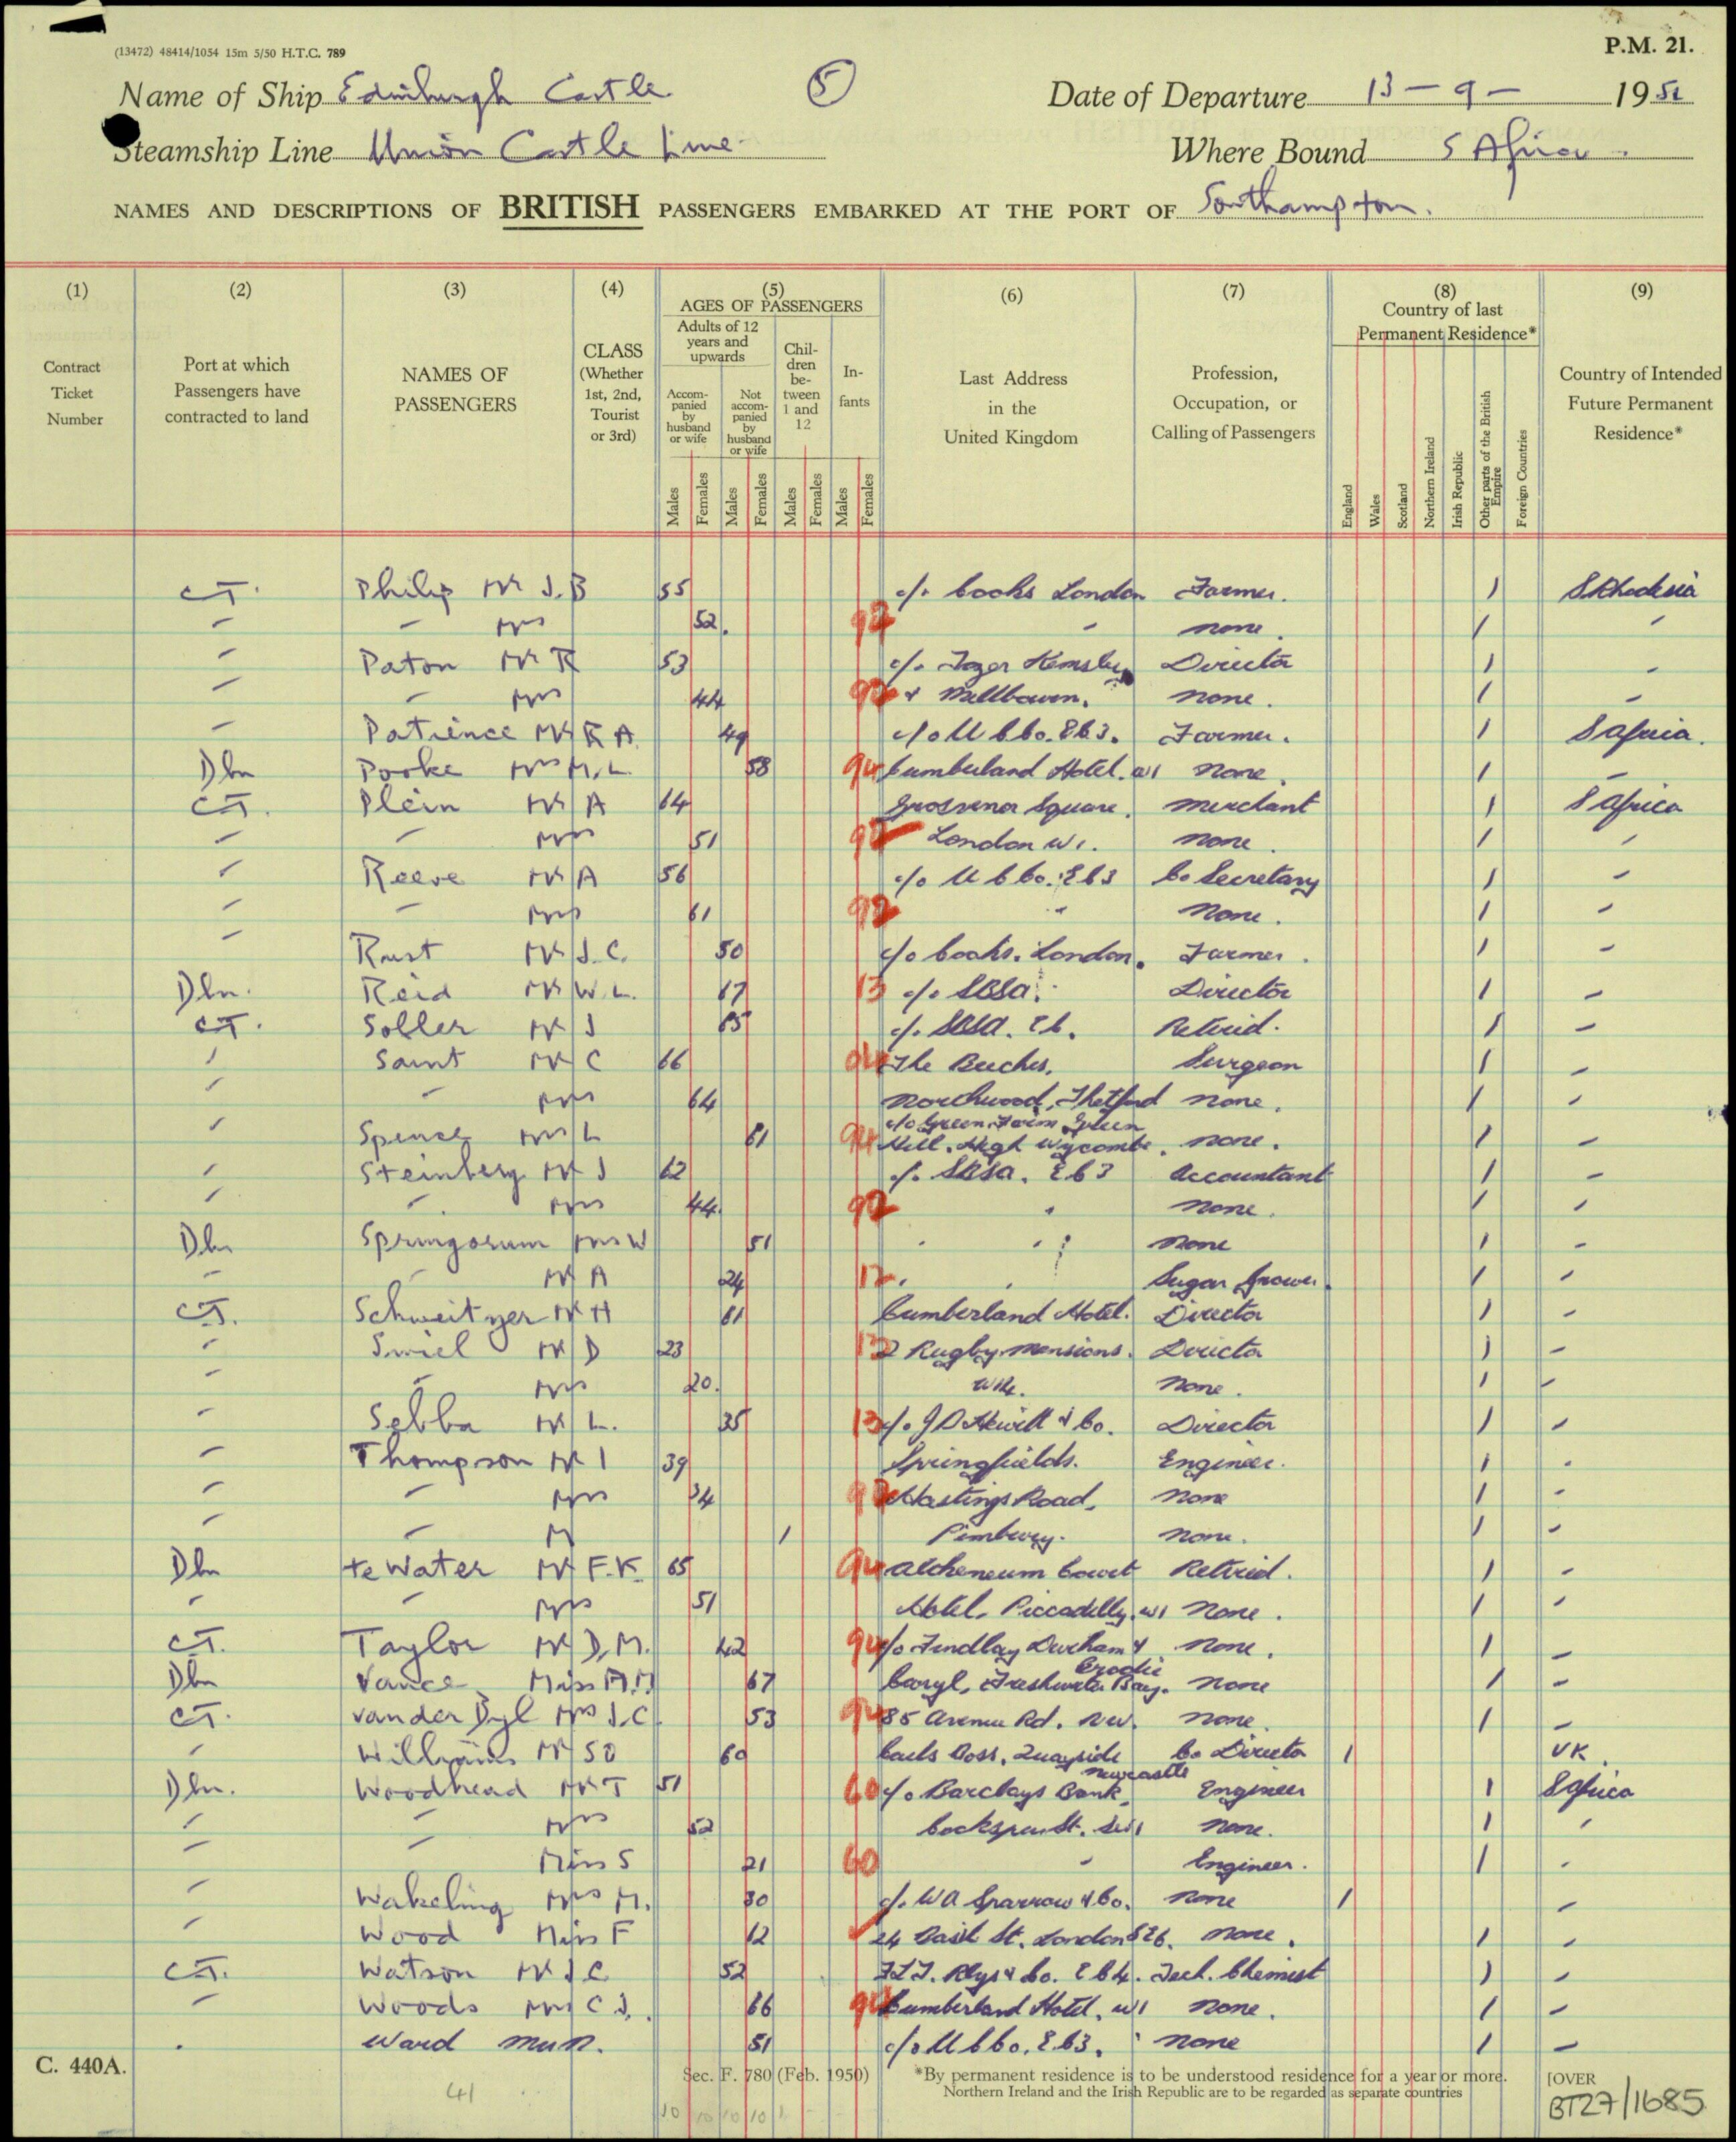 (13472) 48414/1054 15m 5/50 H.T.C. 789
P.M. 21.
Name of Ship Edinburgh Castle (5) Date of Departure 13 - 9 - 1951
Steamship Line Union Castle Line Where Bound S Africa.
NAMES AND DESCRIPTIONS OF BRITISH PASSENGERS EMBARKED AT THE PORT OF Southampton.
(1) (2) (3) (4) (5) (6) (7) (8) (9)
Contract Ticket Number
Port at which Passengers have contracted to land
NAMES OF PASSENGERS
CLASS (Whether 1st, 2nd, Tourist or 3rd)
AGES OF PASSENGERS
Adults of 12 years and upwards
Accompanied by husband or wife
Not accompanied by husband or wife
Children between 1 and 12
Infants
Males Females Males Females Males Females Males Females
Last Address in the United Kingdom
Profession, Occupation, or Calling of Passengers
Country of last Permanent Residence*
England Wales Scotland Northern Ireland Irish Republic Other parts of the British Empire Foreign Countries
Country of Intended Future Permanent Residence*
C.T. Philip Mr J.B 55 c/o Cooks London Farmer. / S Rhodesia
" - Mrs 52. 92 " none. / "
" Paton Mr R 53 c/o Tozer Kemsley Director / "
" - Mrs 44 92 & Millbourn. none. / "
" Patience Mr R A. 49 c/o U C Co. EC3. Farmer. / S Africa.
Dbn Pooke Mrs M.L. 58 94 Cumberland Hotel. W1 none. / "
C.T. Plein Mr A 64 Grosvenor Square. merchant / S Africa
" - Mrs 51 92 London W1. none. / "
" Reeve Mr A 56 c/o U C Co. EC3 Co Secretary / "
" - Mrs 61 92 " none. / "
" Rust Mr J.C. 50 c/o Cooks. London. Farmer. / "
Dbn. Reid Mr W.L. 67 13 c/o SBSA. Director / "
C.T. Soller Mr J 65 c/o SBSA. EC. Retired. / "
" Saint Mr C 66 94 The Beeches, Surgeon / "
" - Mrs 64 Northwood, Thetford none. / "
" Spence Mrs L 61 94 c/o Green Farm Green
Hill. High Wycombe. none. / "
" Steinberg Mr J 62 c/o SBSA. EC3 Accountant / "
" - Mrs 44. 92 " none. / "
Dbn Springorum Mrs W 51 " " none / "
" - Mr A 24 12 " " Sugar Grower. / "
C.T. Schweitzer Mr H 61 Cumberland Hotel. Director / "
" Swiel Mr D 23 2 Rugby Mansions. Director / "
" - Mrs 20. W14. none. / "
" Sebba Mr L. 35 13 c/o J D Hewitt & Co. Director / "
" Thompson Mr I 39 Springfields. Engineer. / "
" - Mrs 34 Hastings Road, none / "
" - M 1 Pembury. none. / "
Dbn te Water Mr F.K. 65 94 Atheneum Court Retired. / "
" - Mrs 51 Hotel, Piccadilly. W1 none. / "
C.T. Taylor Mr D.M. 42 94 c/o Findlay Durham & Brodie none. / "
Dbn Vance Miss A.M 67 Caryl, Freshwater Bay. none / "
C.T. van der Byl Mrs J.C. 53 94 85 Avenue Rd. NW. none. / "
" Williams Mr S O 60 Quayside Newcastle Co Director / UK.
Dbn. Woodhead Mr T 51 60 c/o Barclays Bank, Engineer / S Africa
" - Mrs 52 Cockspur St. SW1 none. / "
" - Miss S 21 60 " Engineer. / "
" Wakeling Mrs M. 30 c/o WA Sparrow & Co. none / "
" Wood Miss F 62 24 Basil St. London none. / "
C.T. Watson Mr J C 52 & Co. EC4. Tech. Chemist / "
" Woods Mrs C J. 66 94 Cumberland Hotel, W1 none. / "
" Ward Mrs N. 51 c/o U C Co. EC3. none / "
C. 440A.
Sec. F. 780 (Feb. 1950)
*By permanent residence is to be understood residence for a year or more.
Northern Ireland and the Irish Republic are to be regarded as separate countries
[OVER
41
10 10 10 10 1
BT27/1685